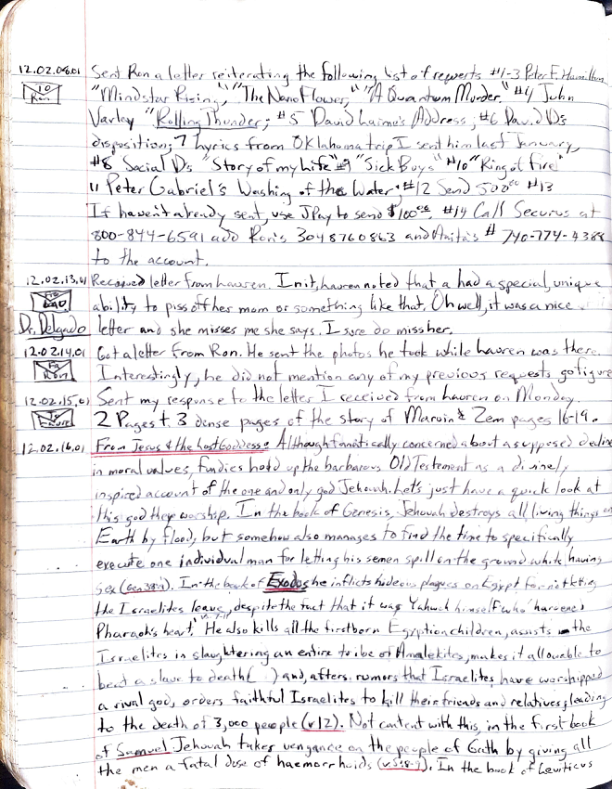 12.02.06.01 Sent Ron a letter reiterating the following list of requests #1-3 Peter F. Hamilton
10 Ron "Mindstar Rising," "The Nano Flower," "A Quantum Murder," #4 John
Varley "Rolling Thunder; #5 David Address; #6 David D's
disposition; 7 lyrics from Oklahoma trip I sent him last January,
#8 Social D's "Story of my Life" #9 "Sick Boys" #10 "Ring of Fire"
11 Peter Gabriel's Washing of the Water; #12 Send #13
If haven't already sent, use JPay to send $100.00 #14 Call Securus at
800-844-6591 add Ron's 3048760863 and Anita's # 740-774-4388
to the account.
12.02.13.01 Received letter from Lauren. In it, Lauren noted that a had a special, unique
ability to piss off her mom or something like that. Oh well, it was a nice
Dr. Delgado letter and she misses me she says. I sure do miss her.
12.02.14.01 Got a letter from Ron. He sent the photos he took while Lauren was there.
Ron Interestingly, he did not mention any of my previous requests go figure
12.02.15.01 Sent my response to the letter I received from Lauren on Monday.
2 Pages + 3 dense pages of the story of Marvin & Zem pages 16-19.
12.02.16.01 From Jesus & the Lost Goddess: Although fanatically concerned about a supposed decline
in moral values, Fundies hold up the barbarous Old Testament as a divinely
inspired account of the one and only god Jehovah. Let's just have a quick look at
this god they worship. In the book of Genesis, Jehovah destroys all living things on
Earth by flood, but somehow also manages to find the time to specifically
execute one individual man for letting his semen spill on the ground while having
sex. In the book of Exodus he inflicts hideous plagues on Egypt for not letting
the Israelites leave, despite the fact that it was Yahweh himself who 'hardened
Pharaoh's heart.' He also kills all the firstborn Egyptian children, assists the
Israelites in slaughtering an entire tribe of Amalekites, makes it allowable to
beat a slave to death ( ) and, after rumors that Israelites have worshipped
a rival god, orders faithful Israelites to kill their friends and relatives, leading
to the death of 3,000 people. Not content with this, in the first book
of Samuel Jehovah takes vengance on the people of Gath by giving all
the men a fatal dose of haemorrhoids. In the book of Leviticus